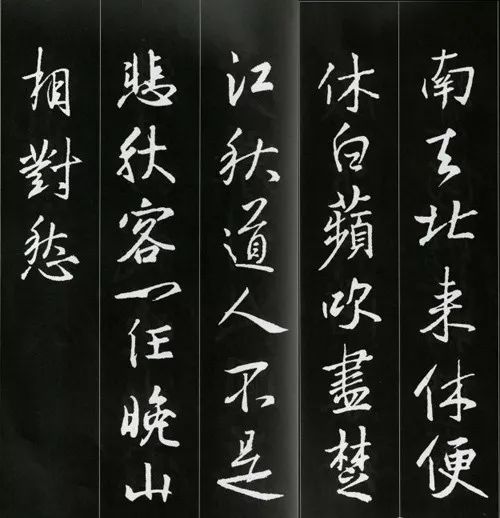 南去北來休便
休白蘋吹盡楚
江秋道人不是
悲秋客一任晚山
相對愁